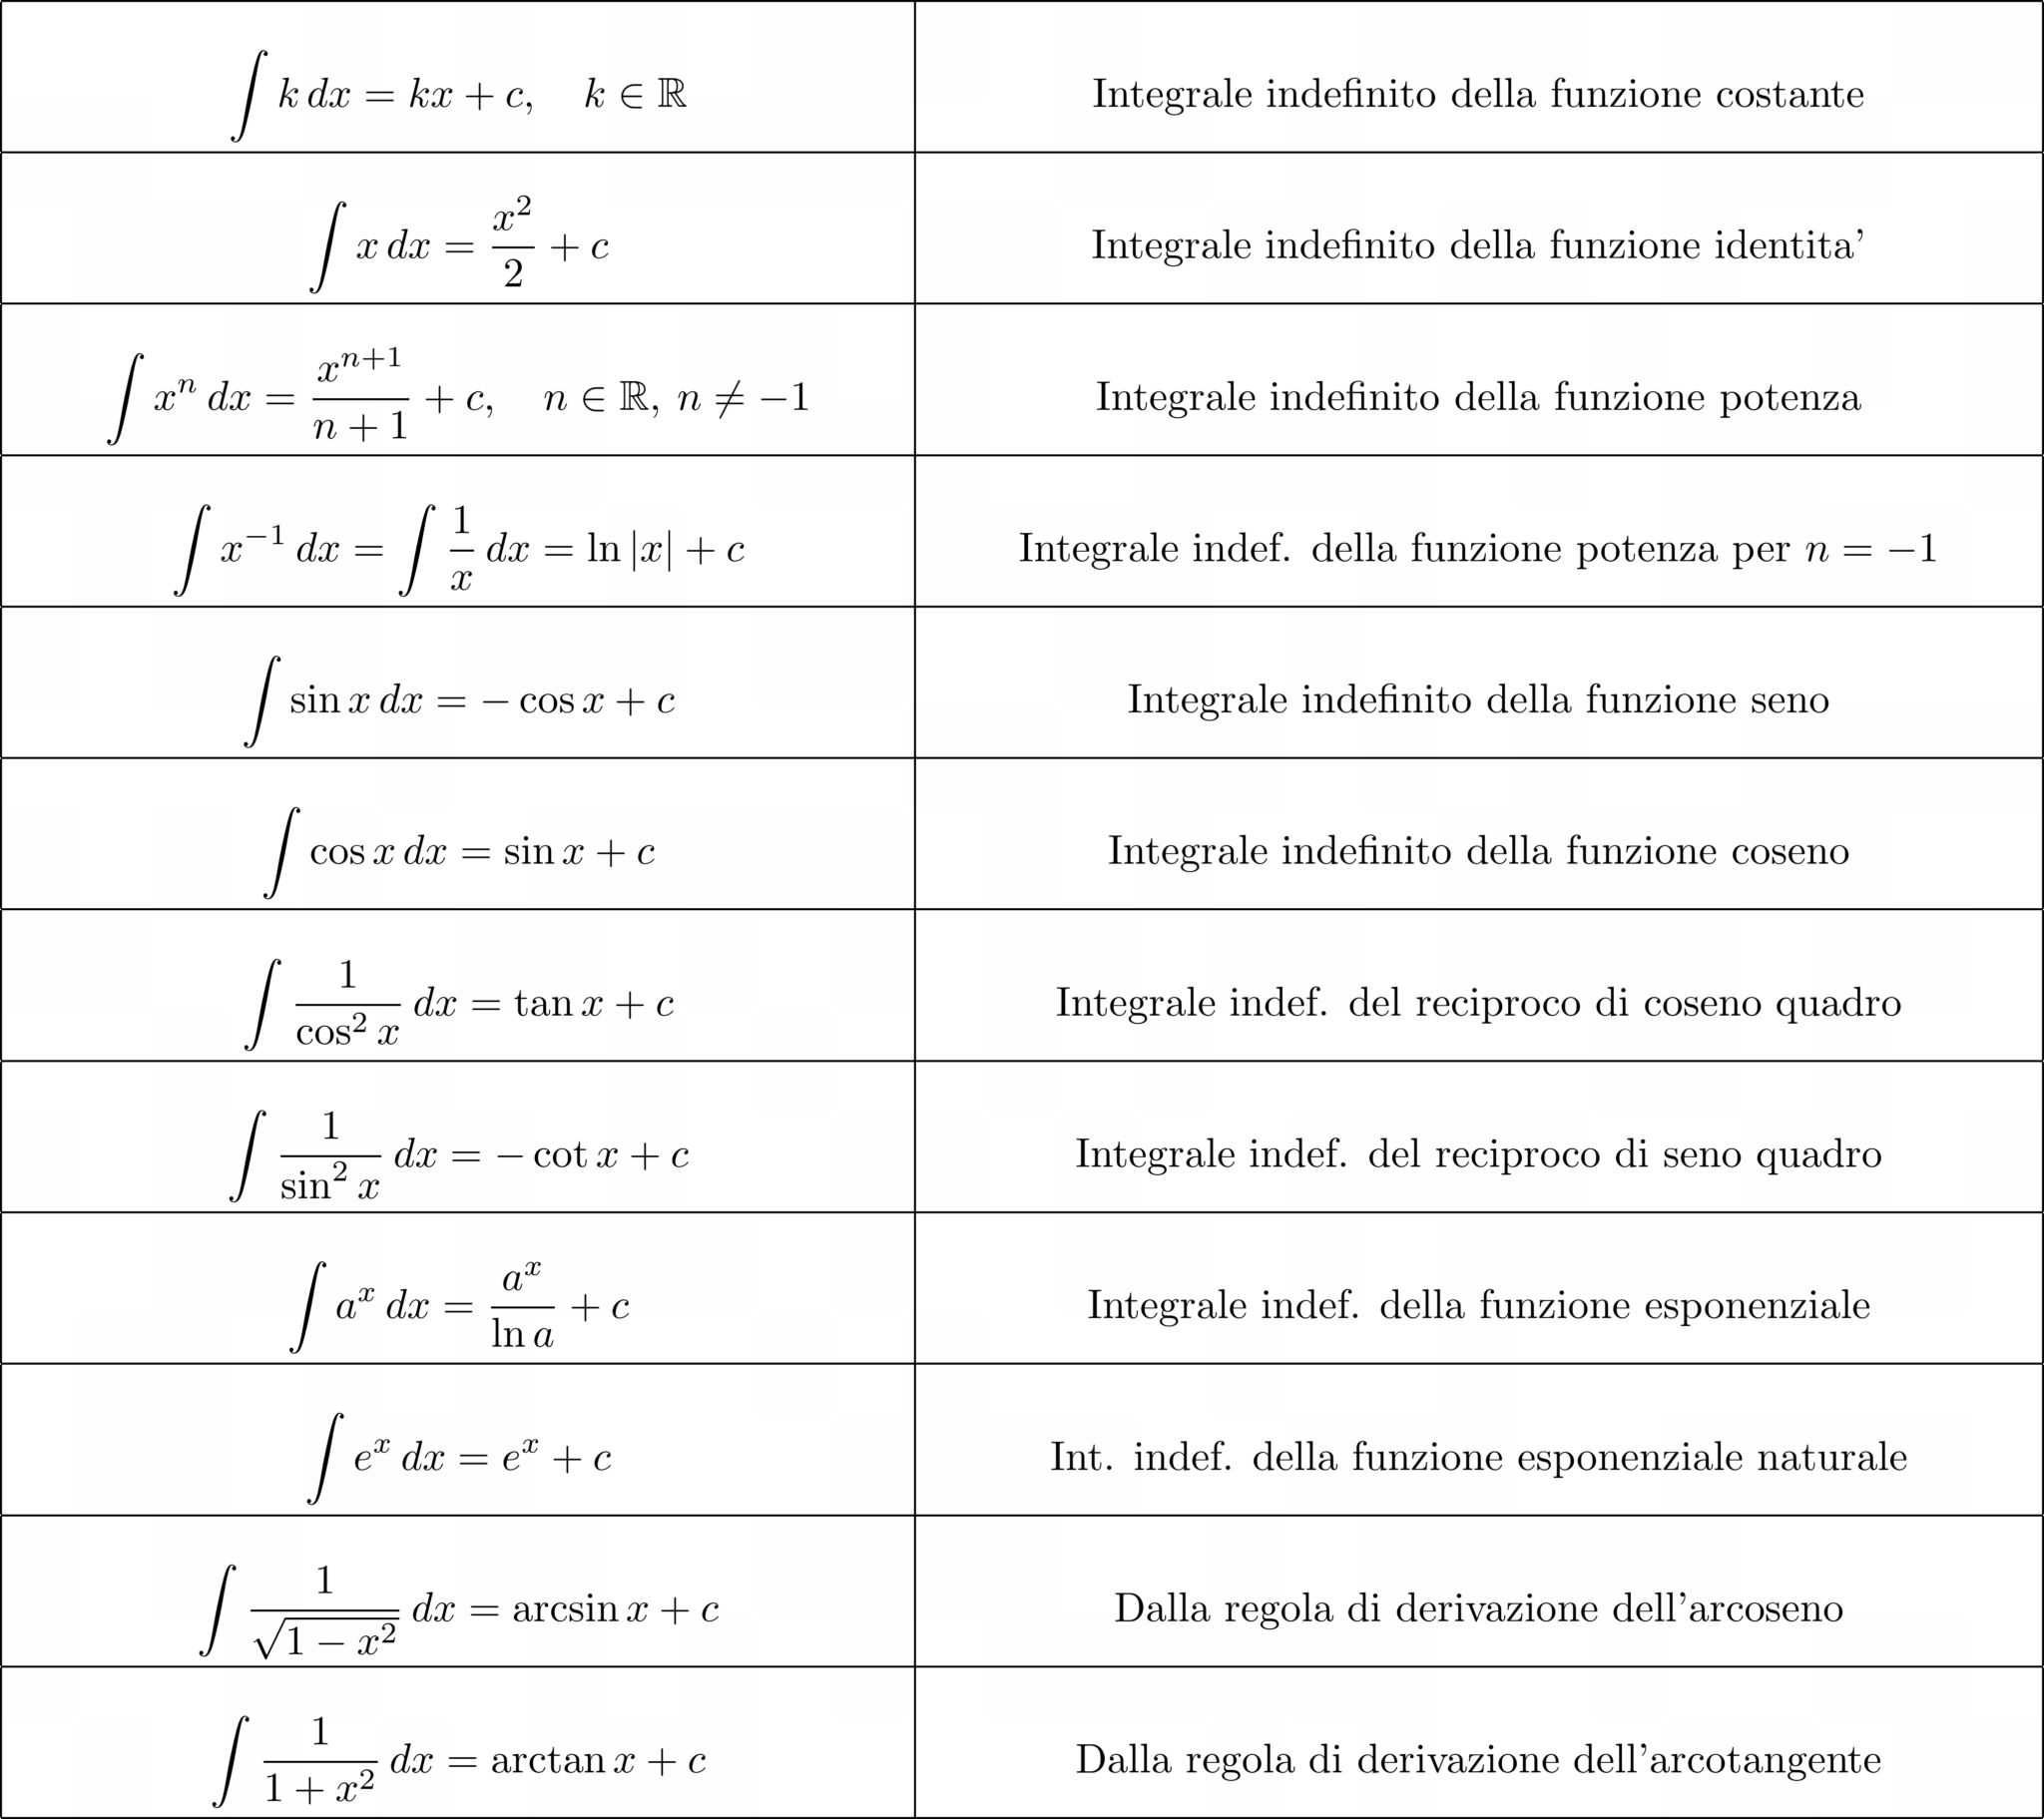 ∫ k dx = kx + c, k ∈ ℝ
Integrale indefinito della funzione costante
∫ x dx = x²/2 + c
Integrale indefinito della funzione identita'
∫ xⁿ dx = xⁿ⁺¹/(n + 1) + c, n ∈ ℝ, n ≠ −1
Integrale indefinito della funzione potenza
∫ x⁻¹ dx = ∫ 1/x dx = ln |x| + c
Integrale indef. della funzione potenza per n = −1
∫ sin x dx = − cos x + c
Integrale indefinito della funzione seno
∫ cos x dx = sin x + c
Integrale indefinito della funzione coseno
∫ 1/cos² x dx = tan x + c
Integrale indef. del reciproco di coseno quadro
∫ 1/sin² x dx = − cot x + c
Integrale indef. del reciproco di seno quadro
∫ aˣ dx = aˣ/ln a + c
Integrale indef. della funzione esponenziale
∫ eˣ dx = eˣ + c
Int. indef. della funzione esponenziale naturale
∫ 1/√(1 − x²) dx = arcsin x + c
Dalla regola di derivazione dell'arcoseno
∫ 1/(1 + x²) dx = arctan x + c
Dalla regola di derivazione dell'arcotangente